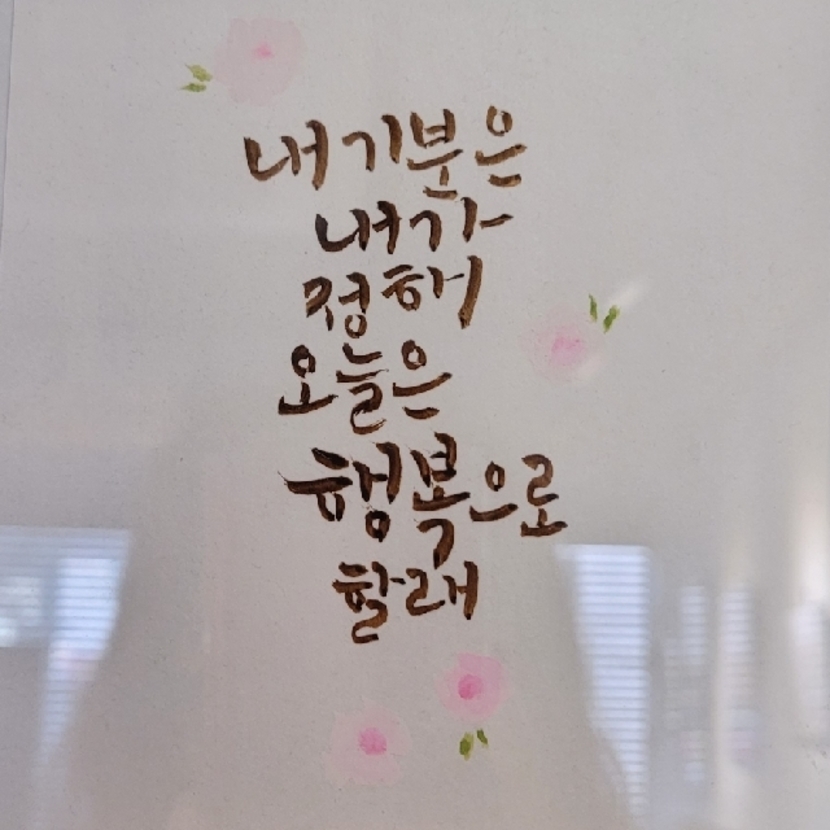 내 기분은
내가
정해
오늘은
행복으로
할래